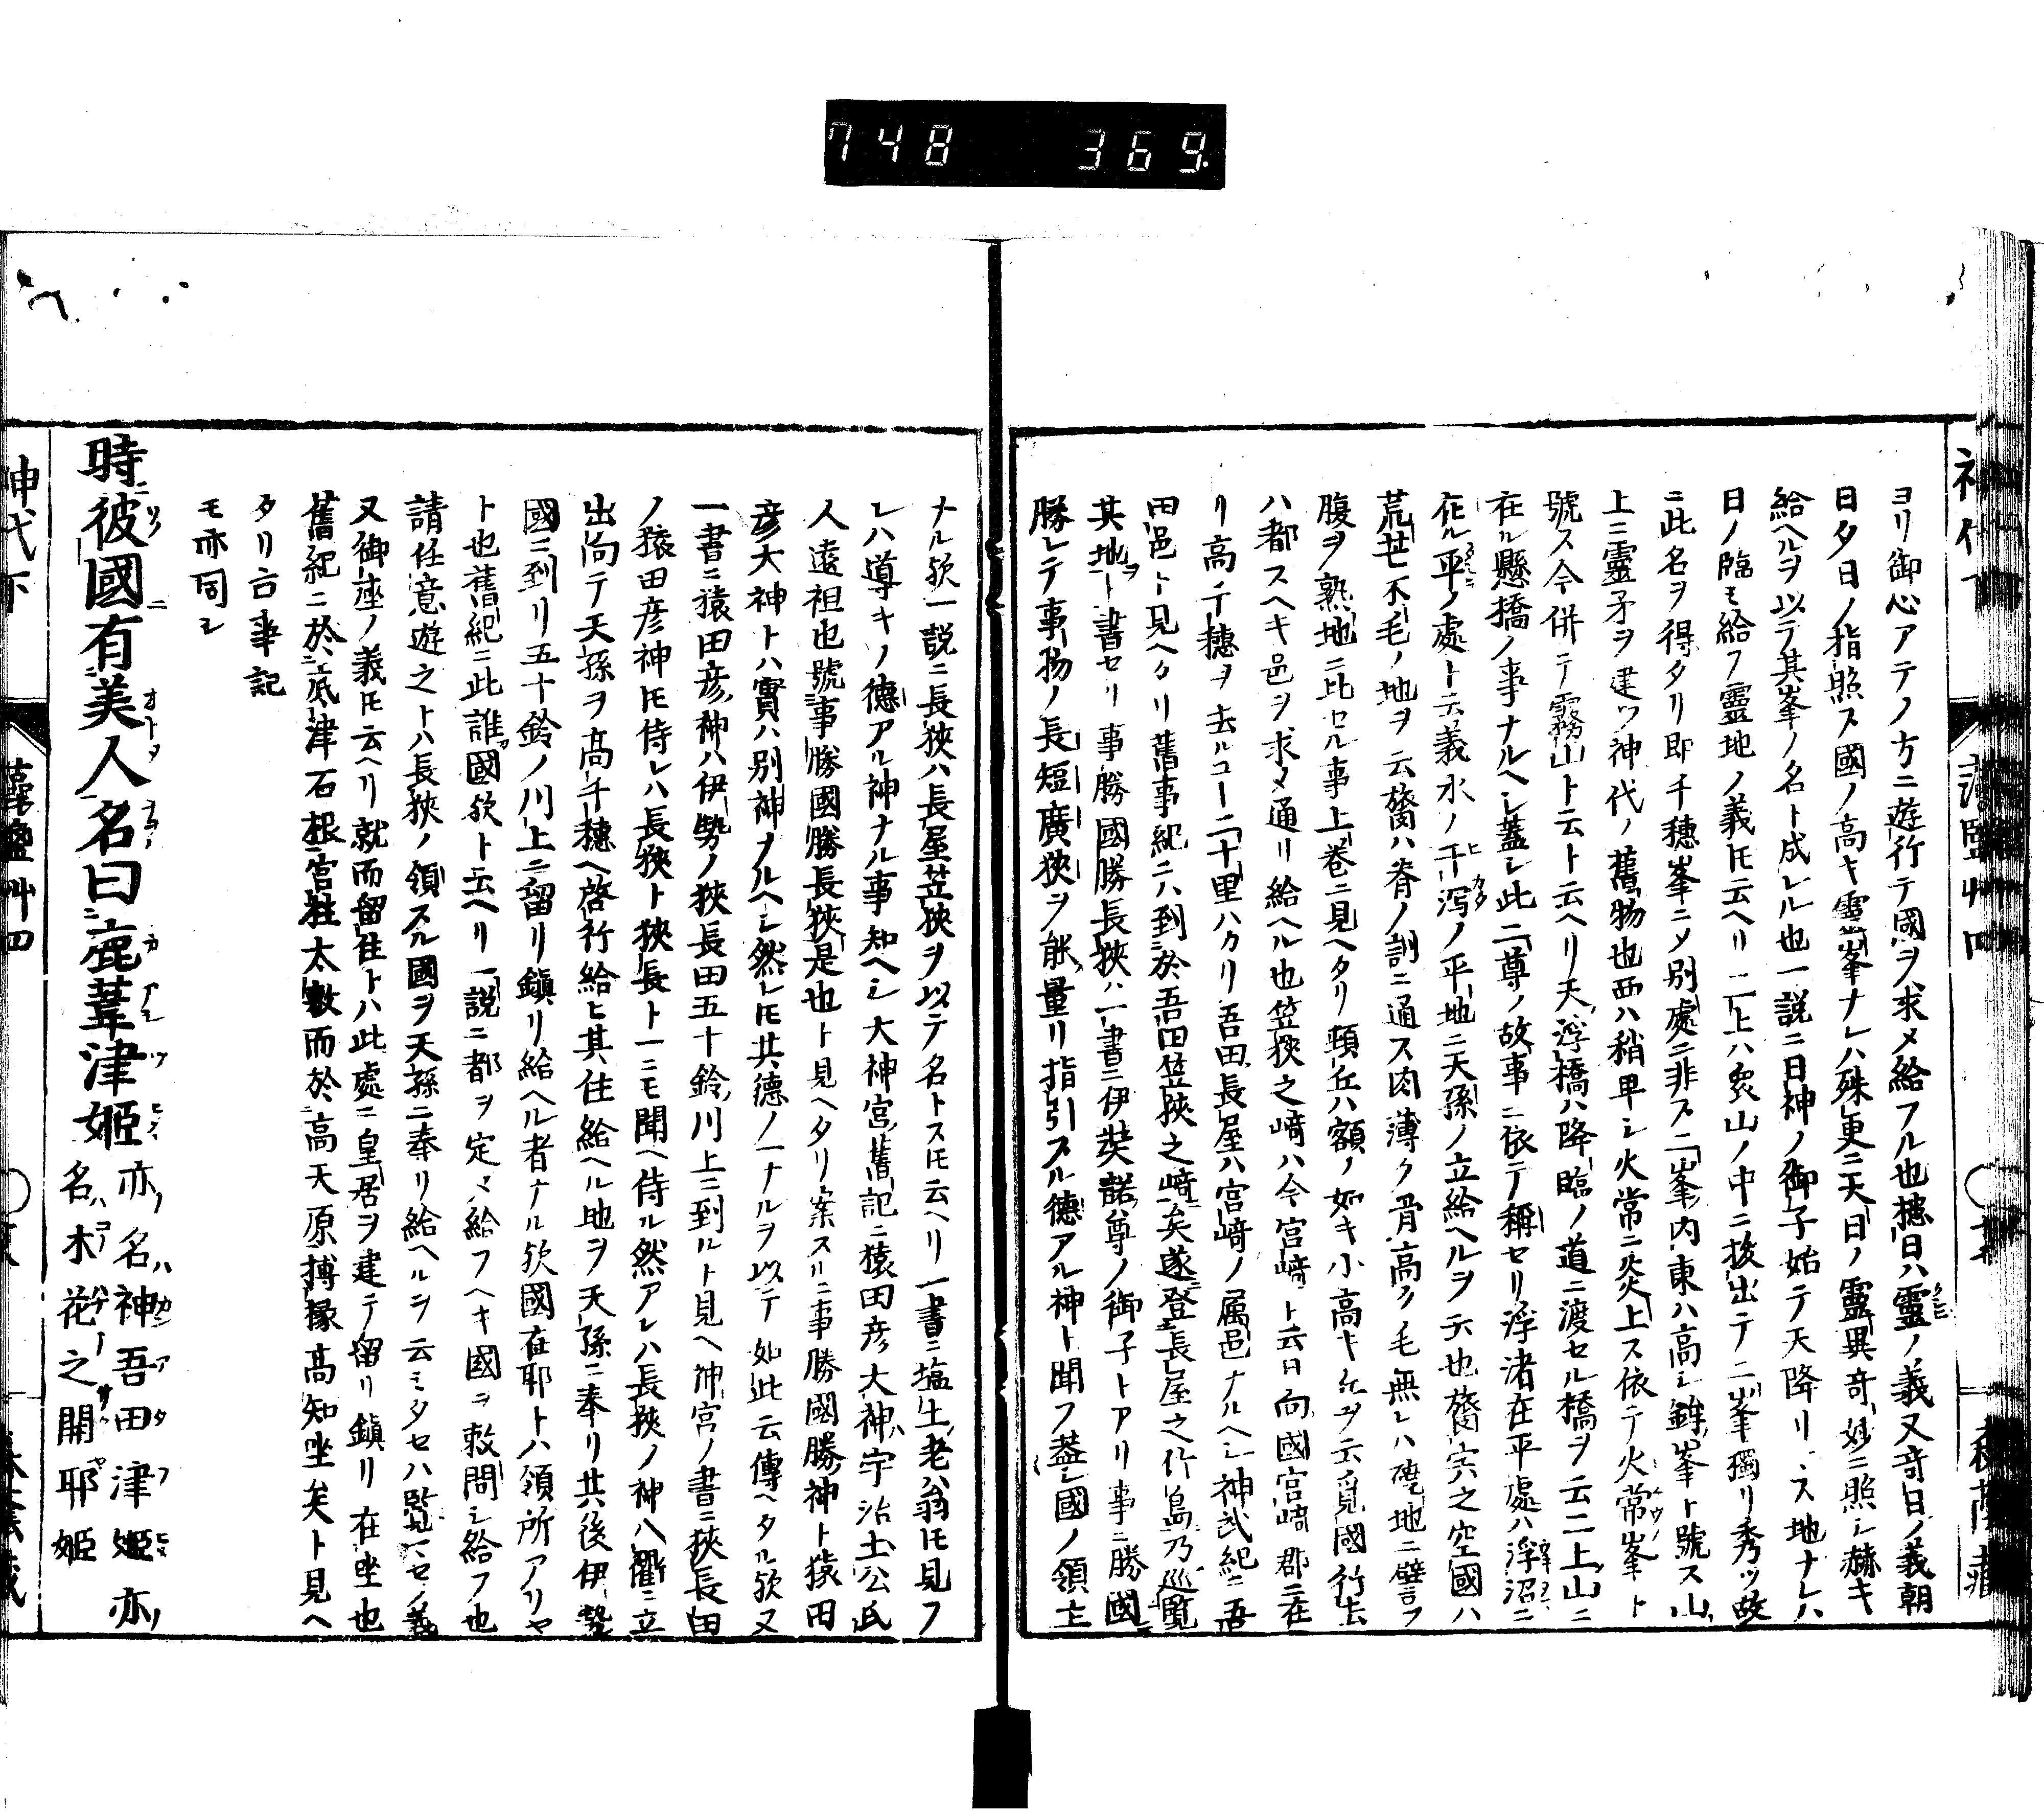 748 369
ヨリ御心アテノ方ニ遊行テ國ヲ求メ給フル也穂日ハ靈ノ義又奇日ノ義朝
日夕日ノ指照ス國ノ高キ靈峯ナレハ殊更ニ天日ノ靈異奇妙ニ照シ赫キ
給ヘルヲ以テ其峯ノ名ト成レル也一説ニ日神ノ御子始テ天降リマス地ナレハ
日ノ臨ミ給フ靈地ノ義トモ云ヘリ二上ハ衆山ノ中ニ抜出テ二峯獨リ秀ツ故
ニ此名ヲ得タリ即千穂峯ニメ別處ニ非ス二峯内東ハ高シ鉾峯ト號ス山
上ニ靈矛ヲ建ツ神代ノ舊物也西ハ稍卑シ火常ニ炎上ス依テ火常峯ト
號ス今併テ霧山ト云ト云ヘリ天浮橋ハ降臨ノ道ニ渡セル橋ヲ云二上山ニ
在ル懸橋ノ事ナルヘシ蓋シ此二尊ノ故事ニ依テ稱セリ浮渚在平處ハ浮沼ニ
在ル平ノ處ト云義水ノ干瀉ノ平地ニ天孫ノ立給ヘルヲ云也膂宍之空國ハ
荒芒不毛ノ地ヲ云膂ハ脊ノ訓ニ通ス肉薄ク骨高ク毛無レハ磽地ニ譬フ
腹ヲ熟地ニ比セル事上巻ニ見ヘタリ頓丘ハ額ノ如キ小高キ丘ヲ云覓國行去
ハ都スヘキ邑ヲ求メ通リ給ヘル也笠狹之﨑ハ今宮﨑ト云日向國宮﨑郡ニ在
リ高千穂ヲ去ルコ一二十里ハカリ吾田長屋ハ宮﨑ノ属邑ナルヘシ神武紀ニ吾
田邑ト見ヘタリ舊事紀ニハ到於吾田笠狹之﨑矣遂登長屋之竹島乃巡覽
其地ト書セリ事勝國勝長狹ハ一書ニ伊弉諾尊ノ御子トアリ事ニ勝國
勝レテ事物ノ長短廣狹ヲ能量リ指引スル德アル神ト聞フ蓋シ國ノ領主
ナル欤一説ニ長狹ハ長屋笠狹ヲ以テ名トストモ云ヘリ一書ニ塩土老翁トモ見フ
レハ導キノ德アル神ナル事知ヘシ大神宮舊記ニ猿田彦大神ハ宇治土公氏
人遠祖也號事勝國勝長狹是也ト見ヘタリ案スルニ事勝國勝神ト猿田
彦大神トハ實ハ別神ナルヘシ然レトモ其德ノ一ナルヲ以テ如此云傳ヘタル欤又
一書ニ猿田彦神ハ伊勢ノ狹長田五十鈴川上ニ到ルト見ヘ神宮ノ書ニ狹長田
ノ猿田彦神トモ侍レハ長狹ト狹長ト一ニモ聞ヘ侍ル然アレハ長狹ノ神ハ衢ニ立
出向テ天孫ヲ高千穂ヘ啓行給ヒ其住給ヘル地ヲ天孫ニ奉リ其後伊勢
國ニ到リ五十鈴ノ川上ニ留リ鎮リ給ヘル者ナル欤國在耶トハ領所アリヤ
ト也舊紀ニ此誰國欤ト云ヘリ一説ニ都ヲ定メ給フヘキ國ヲ敕問シ給フ也
請任意遊之トハ長狹ノ領スル國ヲ天孫ニ奉リ給ヘルヲ云ミタセハ覽マセノ義
又御座ノ義トモ云ヘリ就而留住トハ此處ニ皇居ヲ建テ留リ鎮リ在坐也
舊紀ニ於底津石根宮柱太敷而於高天原搏椽高知坐矣ト見ヘ
タリ古事記
モ亦同シ
時彼國有美人名曰鹿葦津姫亦名神吾田津姫亦
名木花之開耶姫
神代下
藻鹽艸四